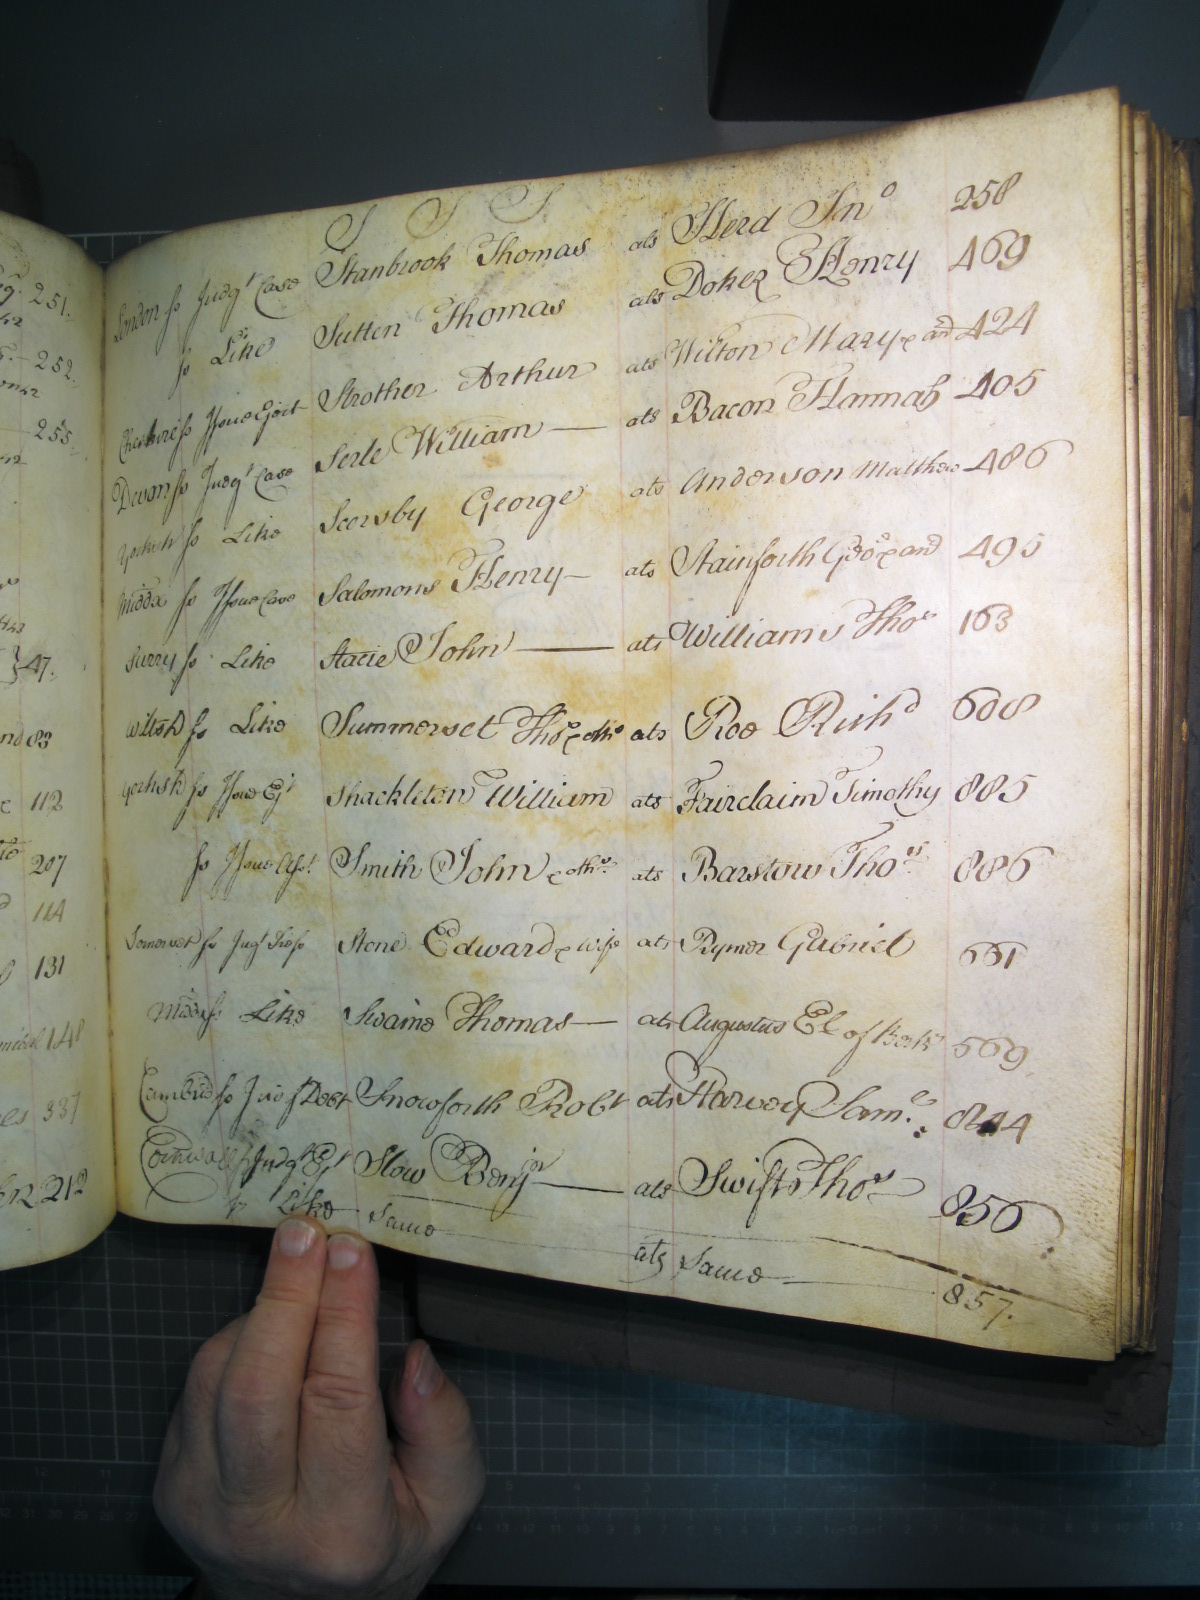 S S S
London ss Judgt Case Stanbrook Thomas ats Herd Jno 258
ss Like Sutten Thomas ats Doker Henry 469
ss Issue Eject Strother Arthur ats Wilton Mary & anr 424
Devon ss Judgt Case Serle William ats Bacon Hannah 405
Yorksh ss Like Scorsby George ats Anderson Matthew 486
Middx ss Issue Case Salomons Henry ats Stainforth Geo & anr 495
Surry ss Like Stacie John ats Williams Thos 163
Wiltsh ss Like Summerset Thos & othrs ats Roe Richd 608
Yorksh ss Issue Ejt Shackleton William ats Fairclaim Timothy 885
ss Issue Asst Smith John & othrs ats Barstow Thos 886
Somerset ss Jugt Tresp Stone Edward & Wife ats Rymer Gabriel 661
Middx ss Like Swaine Thomas ats Augustus El of 569
Cambrid ss Debt Snowforth Robt ats Harvey Saml 844
Cornwall ss Judgt Ejt Slow Benjin ats Swifts Thos 856
Like Same ats Same 857.
251.
252.
255.
47.
83
112
207
114
131
148
337
212